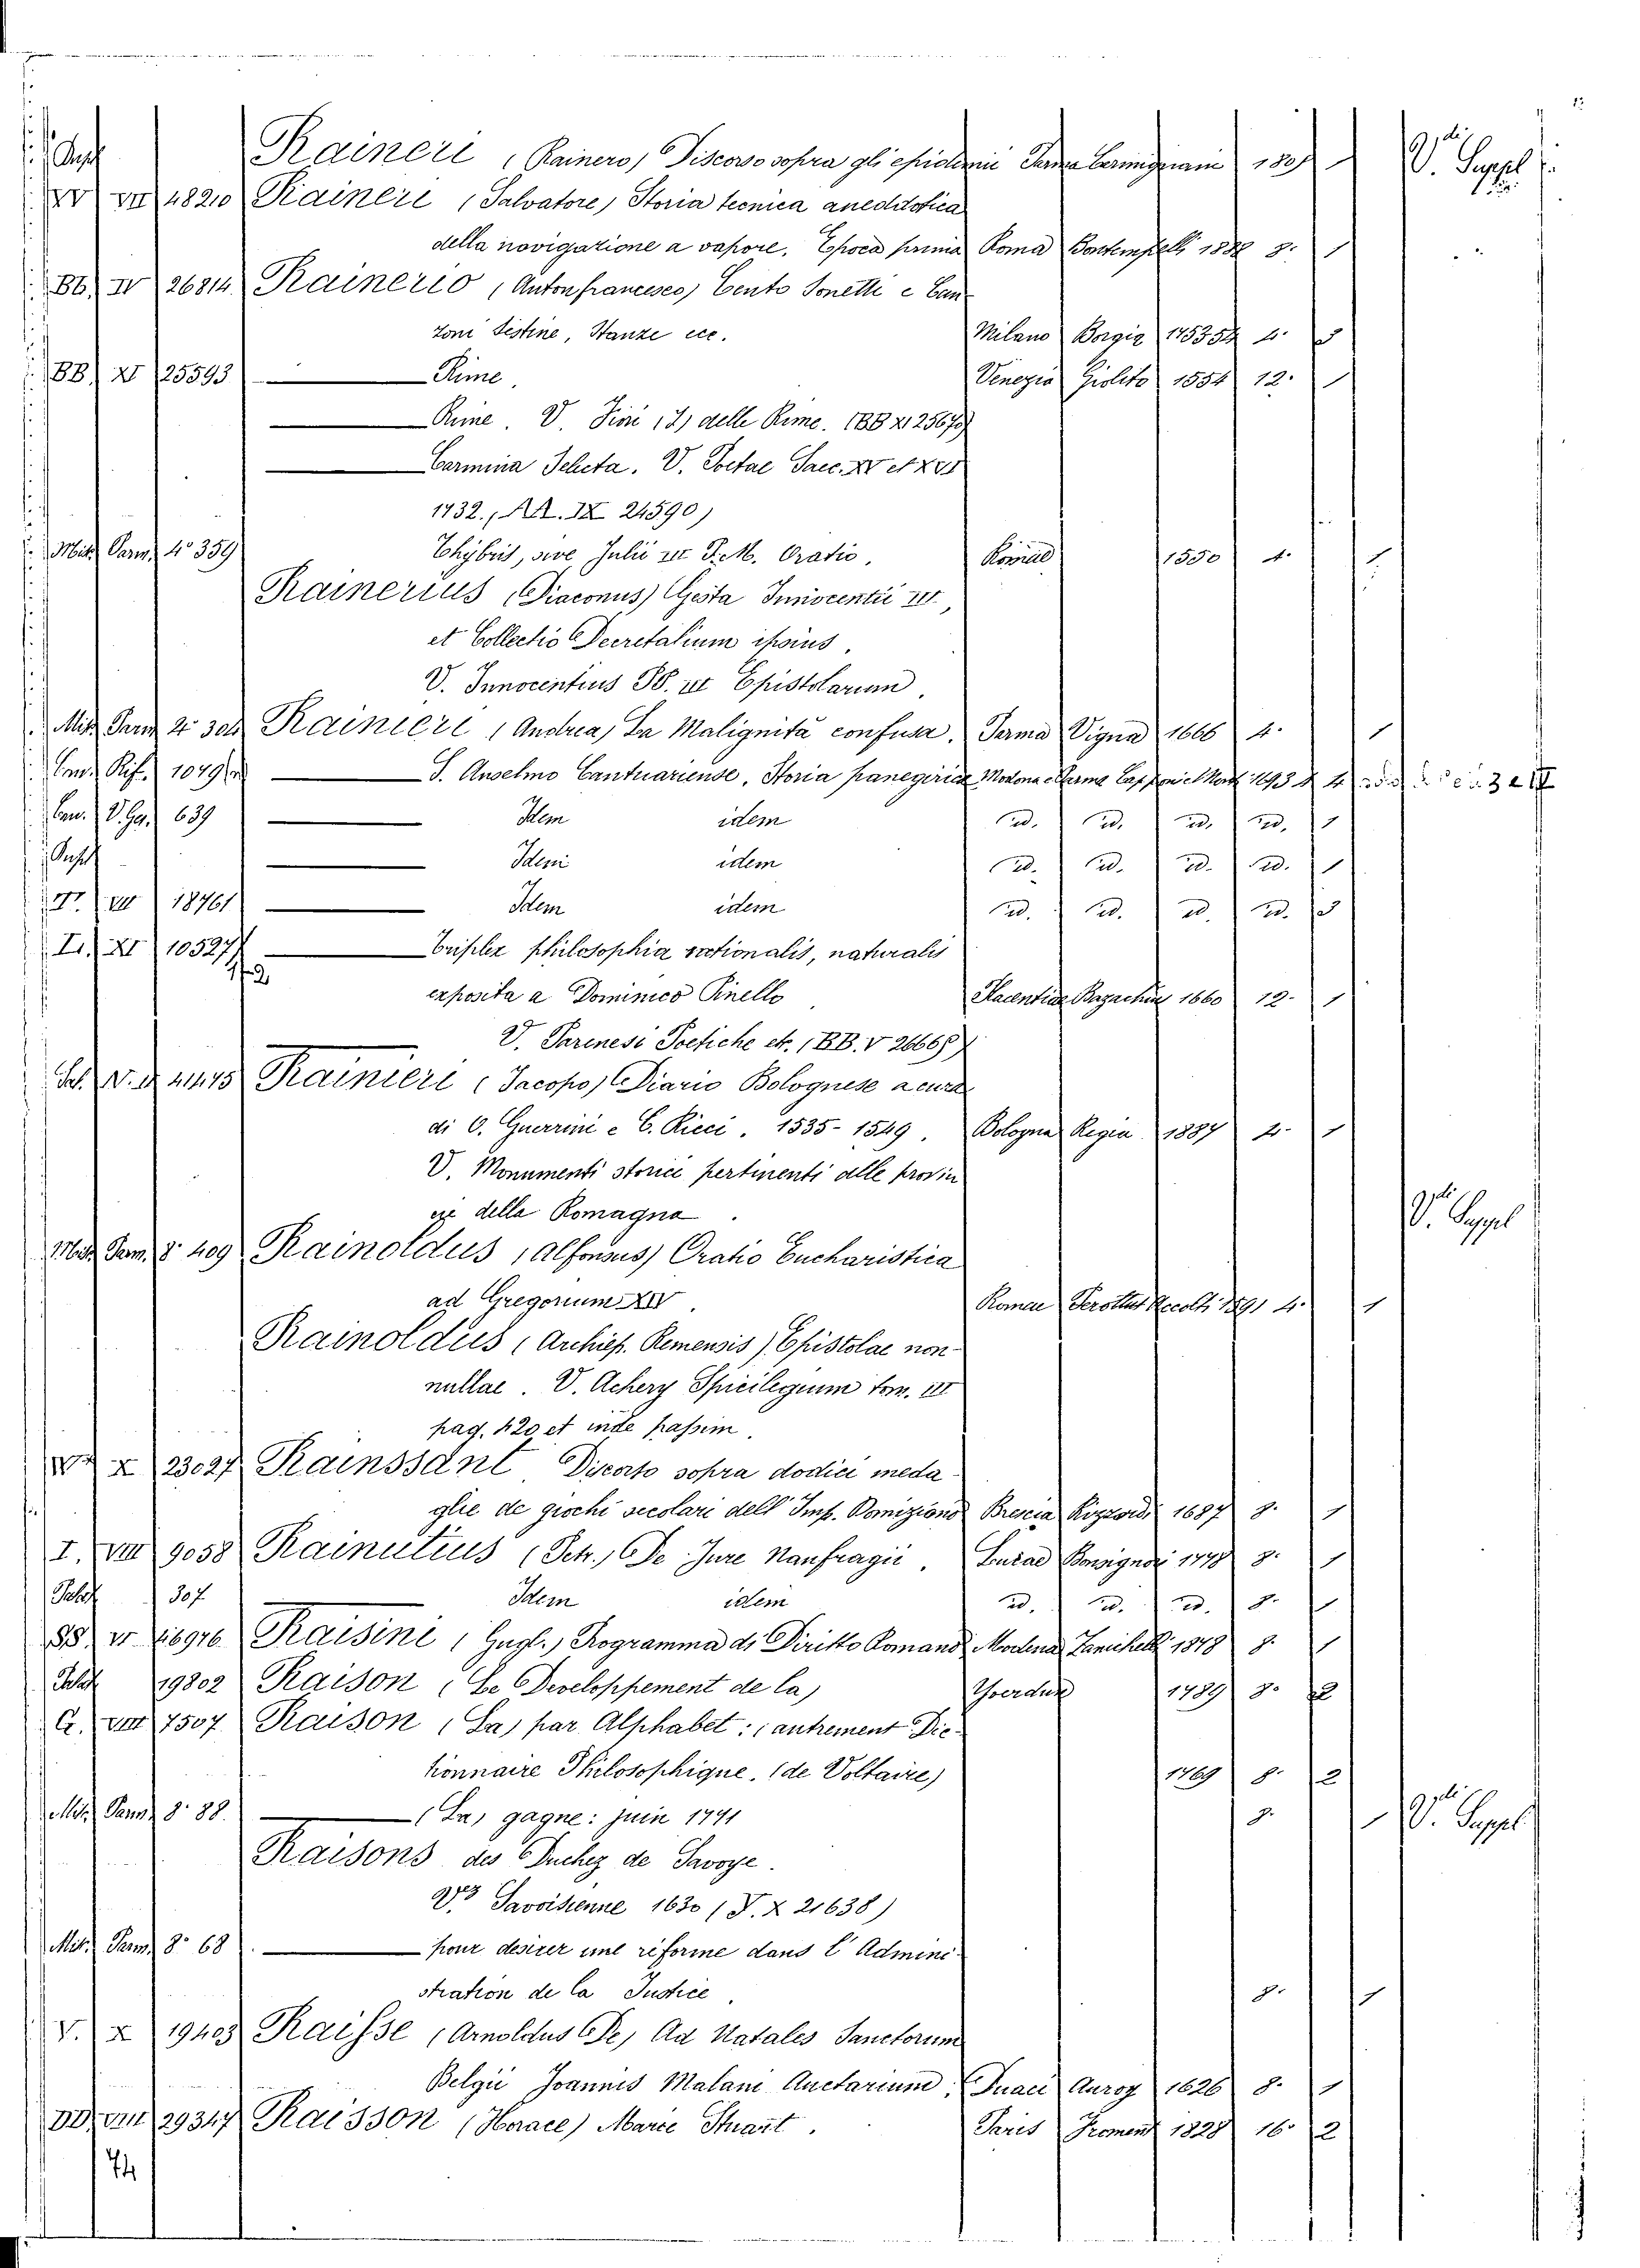 Raineri (Rainero) Discorso sopra gli epidemie Parma Carmignani 180 V. Suppl.
VII 48210 Raineri (Salvatore) Storia tecnica aneddotica
della navigazione a vapore. Epoca prima Roma Bontempelli 1888 8. 1
BB. IV 26814 Rainerio (Antonfrancesco) Cento Sonetti e Can-
zoni Sestine, Stanze ecc. Milano Borgia 4.
BB XI 25593 — Rime. Venezia Giolito 1554 12. 1
— Rime. V. Fiori (I) delle Rime. (BB XI 25670)
— Carmina Selecta. V. Poetae Saec. XV et XVI
1432. (AA. IX 24590)
Misc. Parm. 4º 359 Thybris, sive Julii III P.M. Oratio. Romae 1550 4. 1
Rainerius (Diaconus) Gesta Innocentii III.,
et Collectio Decretalium ipsius.
V. Innocentius PP. III Epistolarum.
Misc. Parm 4º 304 Rainieri (Andrea) La Malignità confusa. Parma Vigna 1666 4. 1
Con. Rif. 1049 — S. Anselmo Cantuariense, Storia panegirica Modona e Parma 1693 4
Con. V. Ga. 639 — Idem idem id. id. id. id. 1
— Idem idem id. id. id. id. 1
VIII 18761 — Idem idem id. id. id. id.
XI 10527/2 — Triplex philosophia rationalis, naturalis
exposita a Dominico Pinello Placentiae Bazachius 1660 12. 1
V. Parenesi Poetiche etc. (BB. V 26668)
Rainieri (Jacopo) Diario Bolognese a cura
di O. Guerrini e C. Ricci. 1535-1549. Bologna Regia 1887 4. 1
V. Monumenti storici pertinenti alle provin
cie della Romagna. V. Suppl
Misc. Parm. 8º 409 Rainoldus (Alfonsus) Oratio Eucharistica
ad Gregorium XIV. Romae 1591 4. 1
Rainoldus (Archiep. Remensis) Epistolae non-
nullae. V. Achery Spicilegium tom. III
pag. 420 et inde passim.
X 23027 Rainssant Discorso sopra dodici meda-
glie de giochi secolari dell' Imp. Domiziano Brescia Rizzardi 1687 8. 1
I. VIII 9058 Rainutius (Petr.) De Jure Naufragii. Lucae Bonsignori 1778 8. 1
307 Idem idem id. id. id. 8. 1
Raisini (Gugl.) Programma di Diritto Romano Modena Zanichelli 1848 8. 1
19802 Raison (Le Developpement de la) Yverdun 1789 8. 2
G. VIII 7507 Raison (La) par Alphabet: (autrement Dic-
tionnaire Philosophique. (de Voltaire) 1769 8. 2
Misc. Parm 8º 88. — (La) gagne: juin 1791 8. V. Suppl.
Raisons des Duchez de Savoye.
V. Savoisienne 1630 (T. X 21638)
Misc. Parm. 8º 68 — pour desirer une réforme dans l'Admini-
stration de la Justice. 8. 1
V. X 19403 Raisse (Arnoldus De) Ad Natales Sanctorum
Belgii Joannis Malani Auctarium. Duaci Auroy 1626 8. 1
DD. VIII 29347 Raisson (Horace) Marie Stuart. Paris Froment 1828 16. 2
74